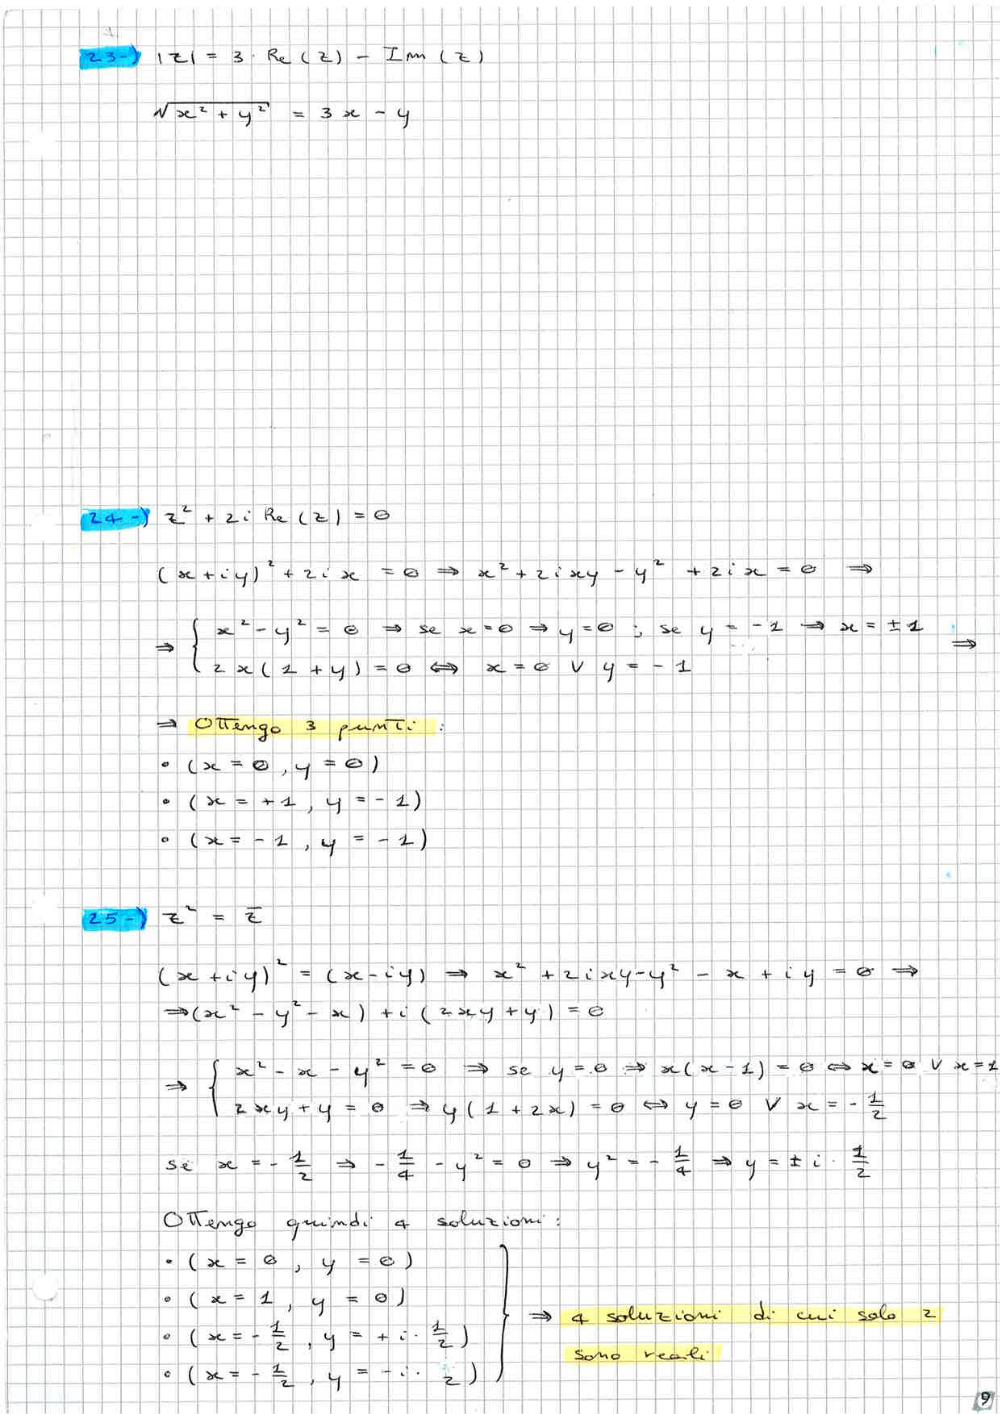 23-) |z| = 3 · Re(z) - Im(z)
√(x² + y²) = 3x - y
24-) z² + 2i Re(z) = 0
(x+iy)² + 2ix = 0 ⇒ x² + 2ixy - y² + 2ix = 0 ⇒
⇒ { x² - y² = 0 ⇒ se x=0 ⇒ y=0 ; se y = -1 ⇒ x = ±1
2x(1+y) = 0 ⇔ x = 0 ∨ y = -1 ⇒
⇒ Ottengo 3 punti:
• (x = 0, y = 0)
• (x = +1, y = -1)
• (x = -1, y = -1)
25-) z² = z̄
(x+iy)² = (x-iy) ⇒ x² + 2ixy - y² - x + iy = 0 ⇒
⇒ (x² - y² - x) + i(2xy + y) = 0
⇒ { x² - x - y² = 0 ⇒ se y = 0 ⇒ x(x-1) = 0 ⇔ x = 0 ∨ x = 1
2xy + y = 0 ⇒ y(1+2x) = 0 ⇔ y = 0 ∨ x = -1/2
se x = -1/2 ⇒ -1/4 - y² = 0 ⇒ y² = -1/4 ⇒ y = ± i · 1/2
Ottengo quindi 4 soluzioni:
• (x = 0, y = 0)
• (x = 1, y = 0)
• (x = -1/2, y = +i · 1/2)
• (x = -1/2, y = -i · 1/2)
} ⇒ 4 soluzioni di cui solo 2
sono reali
9